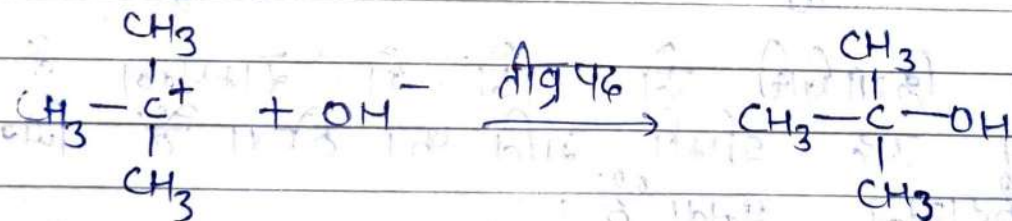 CH3 CH3
CH3 — C+ + OH− तीव्र पद → CH3 — C — OH
CH3 CH3